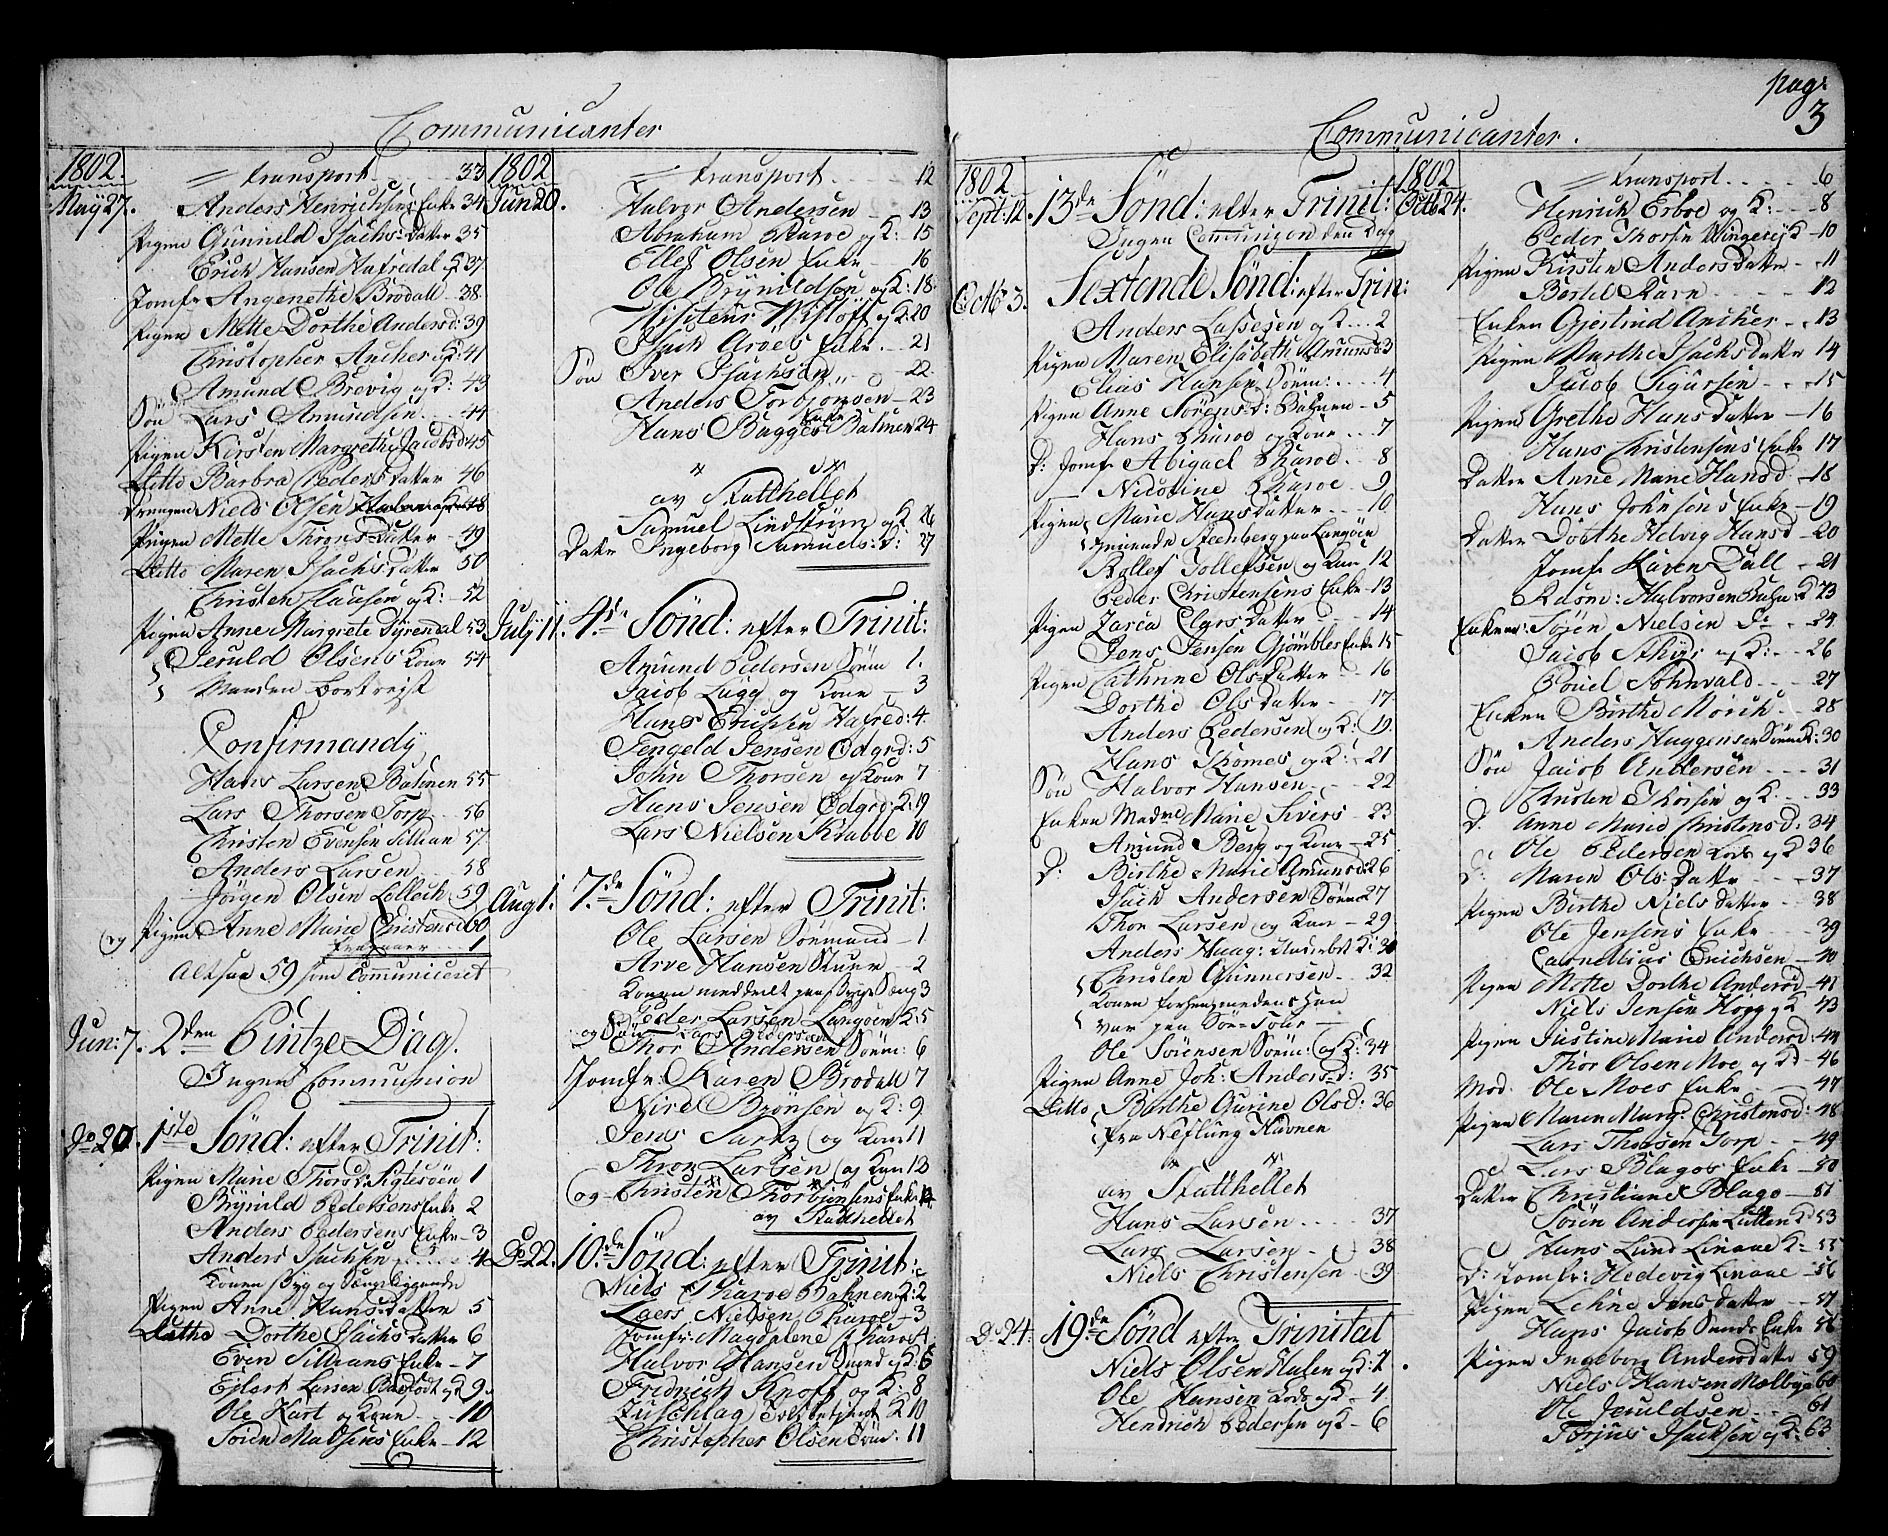 Communicanter
1802.
May 27.
transport 33
Anders Henrichsens Enke 34
Pigen Gunnild Isachs Datter 35
Erich Hansen Hafredal og K 37
Jomfr Angenethe Brodall 38
Pigen Mette Dorthe Andersd: 39
Christopher Ancher og K: 41
Amund Brevig og K: 43
Søn Lars Amundsen 44
Pigen Kirsten Margrethe Jacobsd 45
Ditto Barbra Peders Datter 46
Drengen Niels Olsen
Pigen Mette Throns Datter 49
Ditto Maren Isachs Datter 50
Christen Clausen og K: 52
Pigen Anne Margrete Dyrendal 53
Jeruld Olsens Kone 54
Manden bortreist
Confirmandy
Hans Larsen Bahnen 55
Lars Thorsen Torp 56
Christen Evensen Sillian 57
Anders Larsen 58
Jørgen Olsen 59
og Pigen Anne Marie Christensd 60
fragaaer 1
Altsaa 59 som Communiceret
Jun: 7. 2den Pintze Dag.
Ingen Communion
Do 20. 1ste Sønd: efter Trinit:
Pigen Marie Thorsd: 1
Brynild Pedersens Enke 2
Anders Pedersens Enke 3
Anders Isachsen 4
Konen syg og Sængeliggende
Pigen Anne Hans Datter 5
Ditto Dorthe Isachs Datter 6
Even Sillians Enke 7
Ejlert Larsen og K 9
Ole Hart og Kone 10
Søren Madsens Enke 12
1802
Jun 20.
transport 12
Halvor Andersen 13
Abraham Pharoe og K: 15
Ellef Olsen Enke 16
Ole Brynildsen og K: 18
Visiteur Wisløff og K: 20
Isach Aroes Enke 21
Søn Iver Isachsen 22
Anders Torbjønsen 23
Hans Bagges Enke Bahnen 24
av Statthellet
Samuel Lindstrøm og K 26
Datter Ingeborg Samuels: d: 27
July 11. 4de Sønd: efter Trinit:
Amund Pedersen Sørm 1.
Jacob Lugg og Kone 3
Hans Erichsen Hafred: 4.
Tengeld Jensen Odgrd: 5
John Thorsen og Kone 7
Hans Jensen Odgrd: K: 9
Lars Nielsen Krabbe 10
Aug 1. 7de Sønd: efter Trinit:
Ole Larsen Sørmand 1.
Arve Hansen Stuer 2
Konen meddeelt paa Syge Sæng 3
Peder Larsen Langøen K: 5
og Søn Lars Pedersen
Thor Andersen Sørm: 6
Jomfr: Karen Brodall 7
Nire Bjønsen og K: 9
Jens Sartz og Kone 11
Thron Larsen og Kone 13
og Christen Thorbjønsens Enke 14
av Stathellet
Do 22. 10de Sønd: efter Trinit:
Niels Pharoe Bahnen K: 2
Laers Nielsen Pharoe 3
Jomfr: Magdalene Pharoe 4
Halvor Hansen Smed og K: 6
Fridrich Knoff og K: 8
Zuschlag Toldbetjent K 10
Christopher Olsen Sørm: 11
pag: 3
Communicanter.
1802
Sept: 12. 13de Sønd: efter Trinit:
Ingen Communion den Dag
Octb 3. Sextende Sønd: efter Trin:
Anders Lassesen og K 2
Pigen Maren Elisabeth Amundsd 3
Elias Hansen Sørm: 4
Pigen Anne Sørens d: Bahnen 5
Hans Pharoe og Kone 7
D: Jomfr Abigael Pharoe 8
Nicoline Pharoe 9
Pigen Marie Hans datter 10
tienende Steenberg paa Langøen
Rollef Tollefsen og Kone 12
Peder Christensens Enke 13
Pigen Zaria Datter 14
Jens Jensen Gjømbles Enke 15
Pigen Cathrine Ols Datter 16
Dorthe Ols datter 17
Anders Pedersen og K: 19
Hans Thomes og K: 21
Søn Halvor Hansen 22
Enken Madme Marie Sivers 23
Amund Berg og Kone 25
D: Birthe Marie Amundsd 26
Isach Andersen Sørm 27
Thor Larsen og Kone 29
Anders Haag: K: 30
Christen Gunnersen 32
Konen forhen medens han
var paa Søe-Tour
Ole Sørensen Sørm: og K: 34
Pigen Anne Joh: Andersd: 35
Ditto Birthe Gurine Olsd: 36
fra Neslung Havnen
av Statthellet
Hans Larsen 37
Lars Larsen 38
Niels Christensen 39
Do 24. 19de Sønd efter Trinitat
Niels Olsen Halen og K: 2
Ole Hansen Lods og K 4
Hendrich Pedersen og K 6
1802
Octb 24.
transport 6
Henrich Erboe og K: 8
Peder Thorsen K 10
Pigen Kirsten Anders datter 11
Bertel Karn 12
Enken Gjertrud Ancher 13
Pigen Marthe Isachs datter 14
Jacob Sigursen 15
Pigen Grethe Hans datter 16
Hans Christensens Enke 17
Datter Anne Marie Hansd 18
Hans Johnsens Enke 19
Datter Dorthe Helvig Hansd 20
Jomfr Karen Dall 21
Halvorsen K 23
Søren Nielsen Do 24
Jacob og K: 26
Povel Sohnvald 27
Enken Birthe Morch 28
Anders Haggensen Sørm K: 30
Søn Jacob Andersen 31
Christen Thorsen og K: 33
D. Anne Marie Christensd: 34
Ole Pedersen Lods og K 36
D: Maren Ols: Datter 37
Pigen Birthe Niels datter 38
Ole Jensens Enke 39
Cornellius Erichsen 40
Pigen Mette Dorthe Andersd 41
Niels Jensen Hogg og K 43
Pigen Justine Marie Andersd 44
Thor Olsen Moe og K 46
Mod. Ole Moes Enke 47
Pigen Maren Marg: Christensd: 48
Lars Thorsen Torp 49
Lars Blagos Enke 50
Datter Christiane Blago 51
Søren Andersen Lutten K 53
Hans Lund Linaae K: 55
D: Jomfr: Hedevig Linaae 56
Pigen Lehne Jens datter 57
Hans Jacob Sands Enke 58
Pigen Ingeborg Anders datter 59
Niels Hansen Melbye 60
Ole Jeruldsen 61
Torjus Isachsen og K: 63